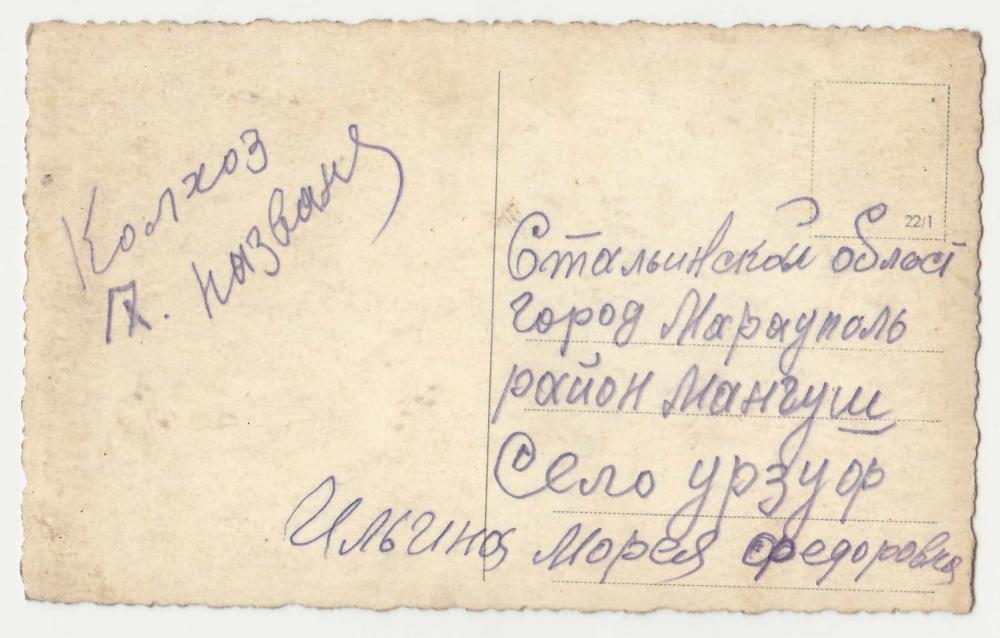 Колхоз
П. названя
22/1
Стальинской област
город Мариуполь
район Мангуш
Село урзуф
Ильина Марея федоровна